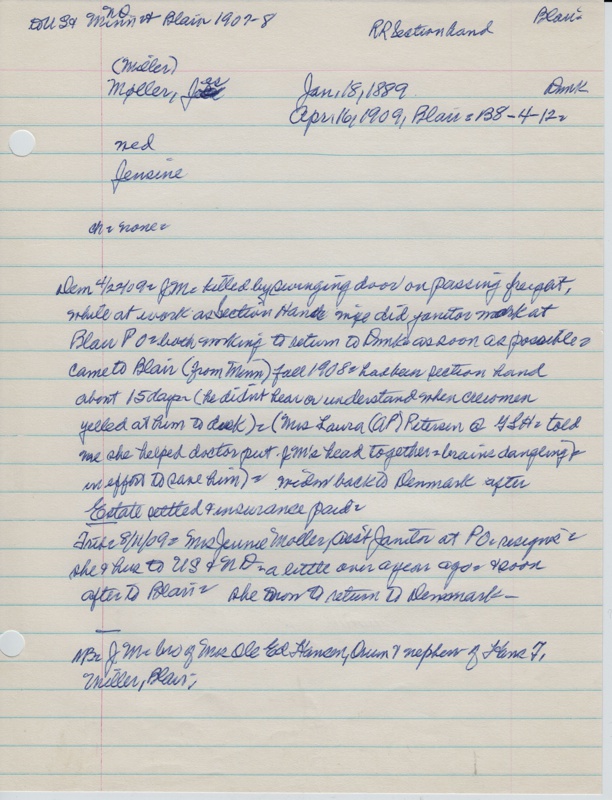 to US & Minn ND & Blair 1907-8 RR Section hand Blair=
(Miller)
Møller, Jas Jan, 18, 1889 Dmk
Apr, 16, 1909, Blair = B8-4-12=
ned
Jensine
ch = none =
Dem 4/22/09 = J.M. killed by swinging door on passing freight,
while at work as Section Hand wife did janitor work at
Blair P O = both working to return to Dmk as soon as possible =
came to Blair (from Minn) fall 1908 = had been section hand
about 15 days (he didnt hear or understand when crewmen
yelled at him to duck) = (Mrs Laura (AP) Petersen @ GLH = told
me she helped doctor put J M's head together = brains dangling =
in effort to save him) = widow back to Denmark after
Estate settled & insurance paid =
Trib = 9/11/09 = Mrs Jennie Moller, asst Janitor at P O = resigns =
she & hus to US & ND = a little over a year ago = & soon
after to Blair = she now to return to Denmark -
NB = J. M = bro of Mrs Ole Ed Hansen, Orum & nephew of Hans T,
Miller, Blair,